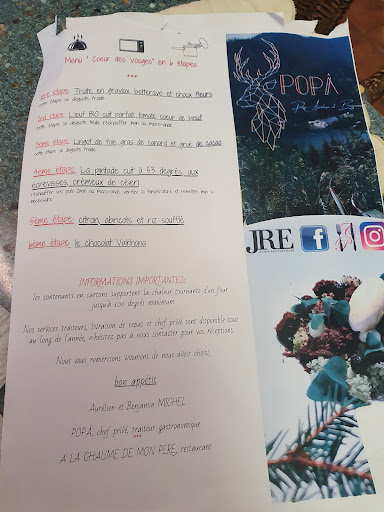 Menu " Coeur des Vosges" en 6 étapes
***
1ère étape: Truite en gravlax, betterave et choux fleurs
cette étape se déguste froide
2nd étape: L'œuf BIO cuit parfait tomate coeur de bœuf
cette étape se déguste froide réchauffer 1min au micro-onde
3ème étape: Lingot de foie gras de canard et grué de cacao
cette étape se déguste froide
4ème étape: La pintade cuit à 83 degrés, aux
écrevisses, crémeux de céleri
réchauffer vos pots 2min au micro-onde, vérifier la température et remettre 1min si
nécessaire
5ème étape: citron, abricots et riz soufflé
6ème étape: le chocolat Valrhona
INFORMATIONS IMPORTANTES:
les contenants en cartons supportent la chaleur tournante d'un four
jusqu'à 200 degrés maximum
Nos services traiteurs, livraison de repas et chef privé sont disponible tout
au long de l'année, n'hésitez pas à nous contacter pour vos réceptions
Nous vous remercions vivement de nous avoir choisi,
bon appétit
Aurélien et Benjamin MICHEL
POPÂ, chef privé, traiteur gastronomique
***
A LA CHAUME DE MON PERE, restaurant
POPÂ
JRE